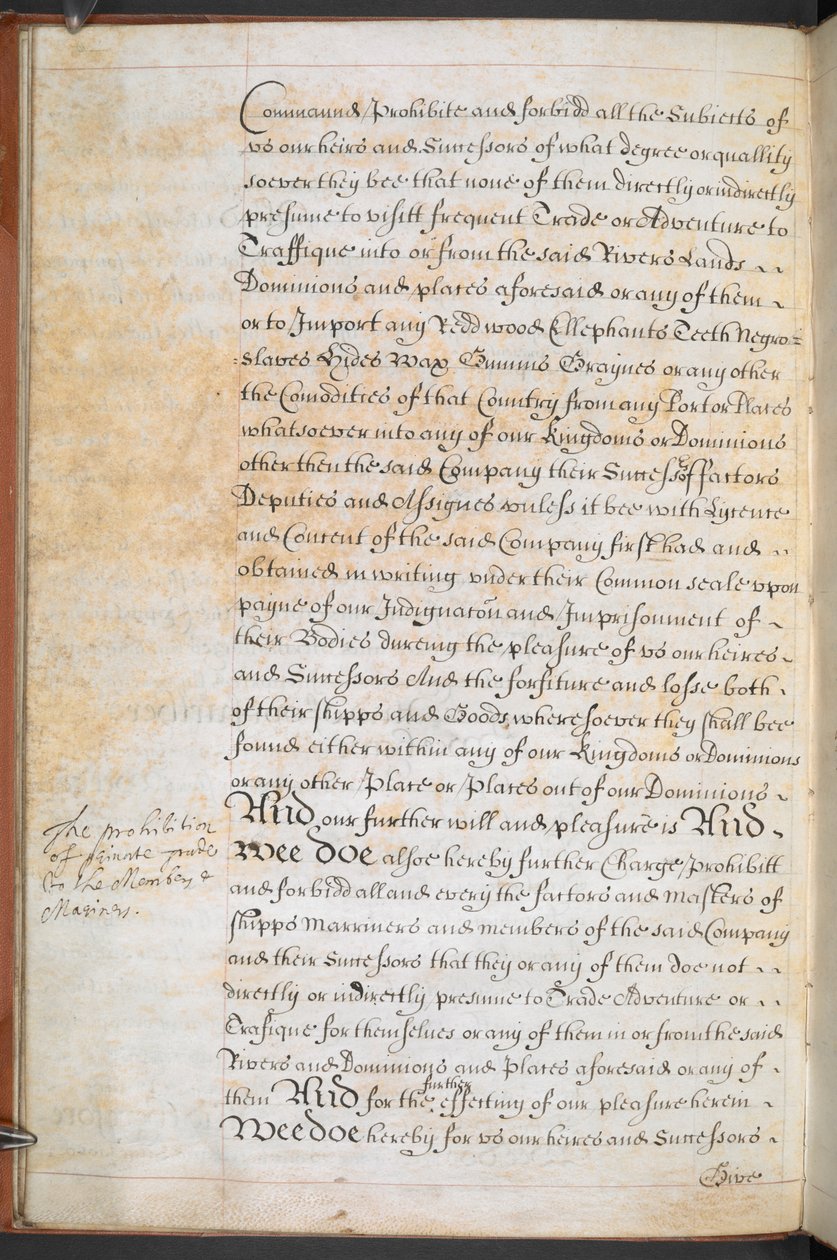 Commannd Prohibite and forbidd all the Subiects of
vs our heirs and Successors of what degree or quallity
soever they bee that none of them directly or indirectly
presume to visitt frequent Trade or Adventure to
Traffique into or from the said Rivers Lands
Dominions and places aforesaid or any of them
or to Import any Redd wood Ellephants Teeth Negro=
=slaves Hydes Wax Gumms Graynes or any other
the Comodities of that Country from any Port or Places
whatsoever into any of our Kingdoms or Dominions
other then the said Company their Successors ffactors
Deputies and Assignes vnless it bee with Lycence
and Concent of the said Company first had and
obtained in writing vnder their Common seale vpon
payne of our Indignacon and Imprisonment of
their Bodies dureing the pleasure of vs our heires
and Successors And the forfiture and losse both
of their shipps and Goods wheresoever they shall bee
found either within any of our Kingdoms or Dominions
or any other Place or Places out of our Dominions
And our further will and pleasure is And
Wee doe alsoe hereby further Charge Prohibitt
and forbidd all and every the factors and Masters of
shipps Marriners and members of the said Company
and their Successors that they or any of them doe not
directly or indirectly presume to Trade Adventure or
Trafique for themselues or any of them in or from the said
Rivers and Dominions and Places aforesaid or any of
them And for the further effecting of our pleasure herein
Wee doe hereby for vs our heires and Successors
Give
The prohibition
of private trade
to the Members &
Mariners.